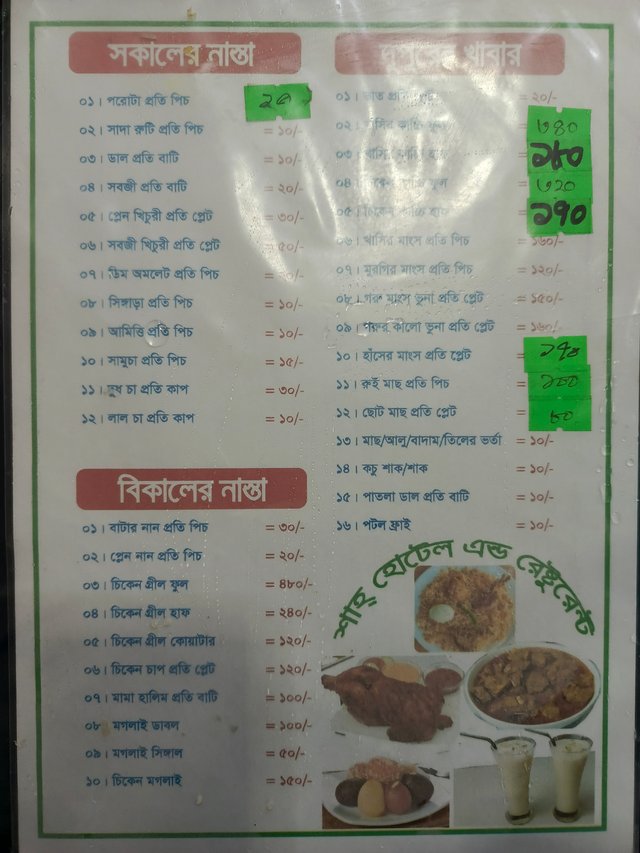 সকালের নাস্তা
০১। পরোটা প্রতি পিচ
০২। সাদা রুটি প্রতি পিচ = ১০/-
০৩। ডাল প্রতি বাটি = ১০/-
০৪। সবজী প্রতি বাটি = ২০/-
০৫। প্লেন খিচুরী প্রতি প্লেট = ৩০/-
০৬। সবজী খিচুরী প্রতি প্লেট = ৫০/-
০৭। ডিম অমলেট প্রতি পিচ
০৮। সিঙ্গাড়া প্রতি পিচ = ১০/-
০৯। আমিত্তি প্রতি পিচ = ১০/-
১০। সামুচা প্রতি পিচ = ১৫/-
১১। দুধ চা প্রতি কাপ = ৩০/-
১২। লাল চা প্রতি কাপ = ১০/-
বিকালের নাস্তা
০১। বাটার নান প্রতি পিচ = ৩০/-
০২। প্লেন নান প্রতি পিচ = ২০/-
০৩। চিকেন গ্রীল ফুল = ৪৮০/-
০৪। চিকেন গ্রীল হাফ = ২৪০/-
০৫। চিকেন গ্রীল কোয়াটার = ১২০/-
০৬। চিকেন চাপ প্রতি প্লেট = ১২০/-
০৭। মামা হালিম প্রতি বাটি = ১০০/-
০৮। মগলাই ডাবল = ১০০/-
০৯। মগলাই সিঙ্গাল = ৫০/-
১০। চিকেন মগলাই = ১৫০/-
দুপুরের খাবার
০১। ভাত = ২০/-
০২। ফুল ৩৪০
০৩। হাফ ১৮০
০৪। ফুল ৩২০
০৫। চিকেন হাফ ১৭০
০৬। খাসির মাংস প্রতি পিচ = ১৬০/-
০৭। মুরগির মাংস প্রতি পিচ = ১২০/-
০৮। গরু মাংস ভুনা প্রতি প্লেট = ১৫০/-
০৯। গরুর কালো ভুনা প্রতি প্লেট = ১৬০/-
১০। হাঁসের মাংস প্রতি প্লেট
১১। রুই মাছ প্রতি পিচ = ১০০
১২। ছোট মাছ প্রতি প্লেট = ৮০
১৩। মাছ/আলু/বাদাম/তিলের ভর্তা = ১০/-
১৪। কচু শাক/শাক = ১০/-
১৫। পাতলা ডাল প্রতি বাটি = ১০/-
১৬। পটল ফ্রাই = ১০/-
শাহ্ হোটেল এন্ড রেষ্টুরেন্ট